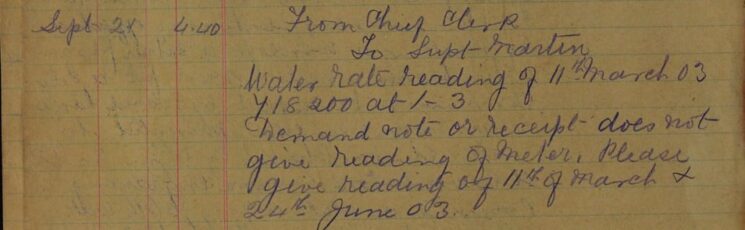 Sept 24 4.40 From Chief Clerk
To Supt Martin
Water rate reading of 11th March 03
718200 at 1/- 3
Demand note or receipt does not
give reading of Meter. Please
give reading of 11th of March &
24th June 03.